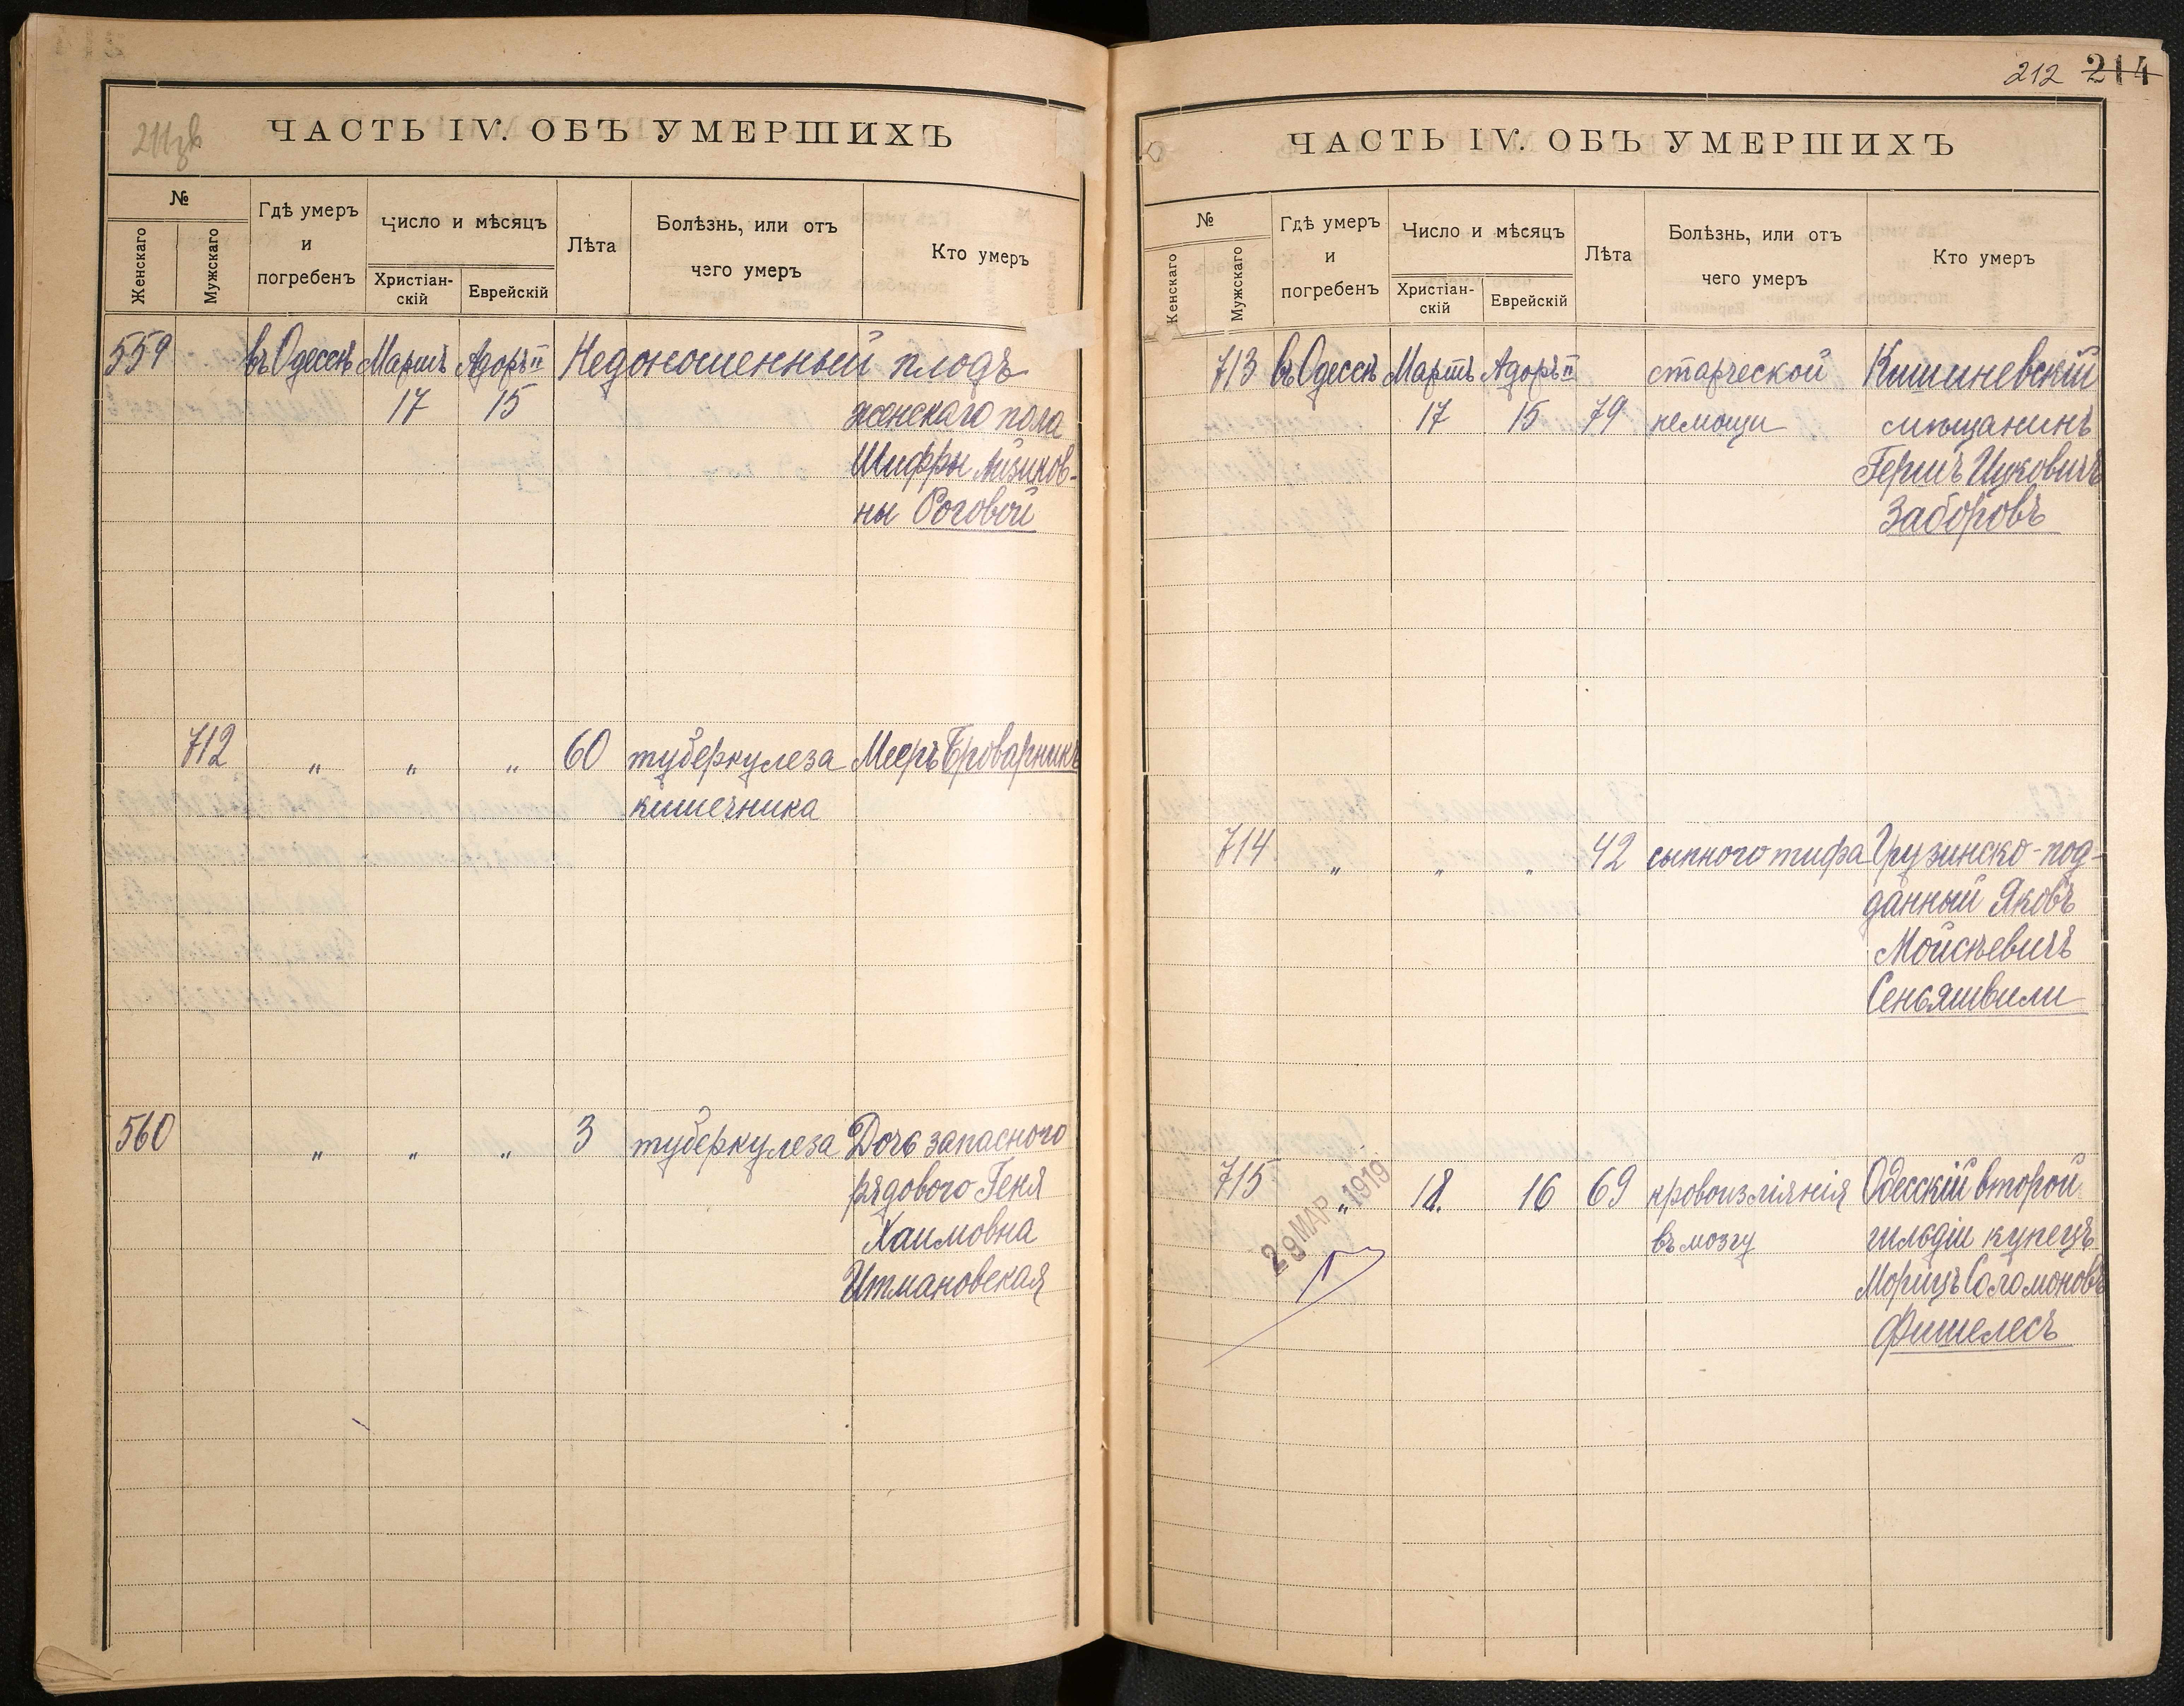 211зв
ЧАСТЬ IV. ОБЪ УМЕРШИХЪ
№
Женскаго
Мужскаго
Гдѣ умеръ
и
погребенъ
Число и мѣсяцъ
Христіан-
скій
Еврейскій
Лѣта
Болѣзнь, или отъ
чего умеръ
Кто умеръ
559 въ Одессѣ Мартъ Адоръ II Недоношенный плодъ
17 15 женскаго пола
Шифры Айзиков-
ны Роговой
712 " " " 60 туберкулеза Мееръ Броварникъ
кишечника
560 " " " 3 туберкулеза Дочь запасного
рядового Геня
Хаимовна
Итмановская
212 214
ЧАСТЬ IV. ОБЪ УМЕРШИХЪ
№
Женскаго
Мужскаго
Гдѣ умеръ
и
погребенъ
Число и мѣсяцъ
Христіан-
скій
Еврейскій
Лѣта
Болѣзнь, или отъ
чего умеръ
Кто умеръ
713 въ Одессѣ Мартъ Адоръ II старческой Кишиневскій
17 15 79 немощи мѣщанинъ
Гершъ Ицковичъ
Заборовъ
714 " " " 42 сыпного тифа Грузинско-под-
данный Яковъ
Мойсѣевичъ
Сеньяшвили
715 " 18. 16 69 кровоизліянія Одесскій второй
въ мозгу гильдіи купецъ
Морицъ Соломоновъ
Фишелесъ
29 МАР 1919